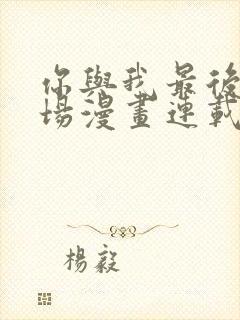 你與我最後
場漫畫連載
楊毅